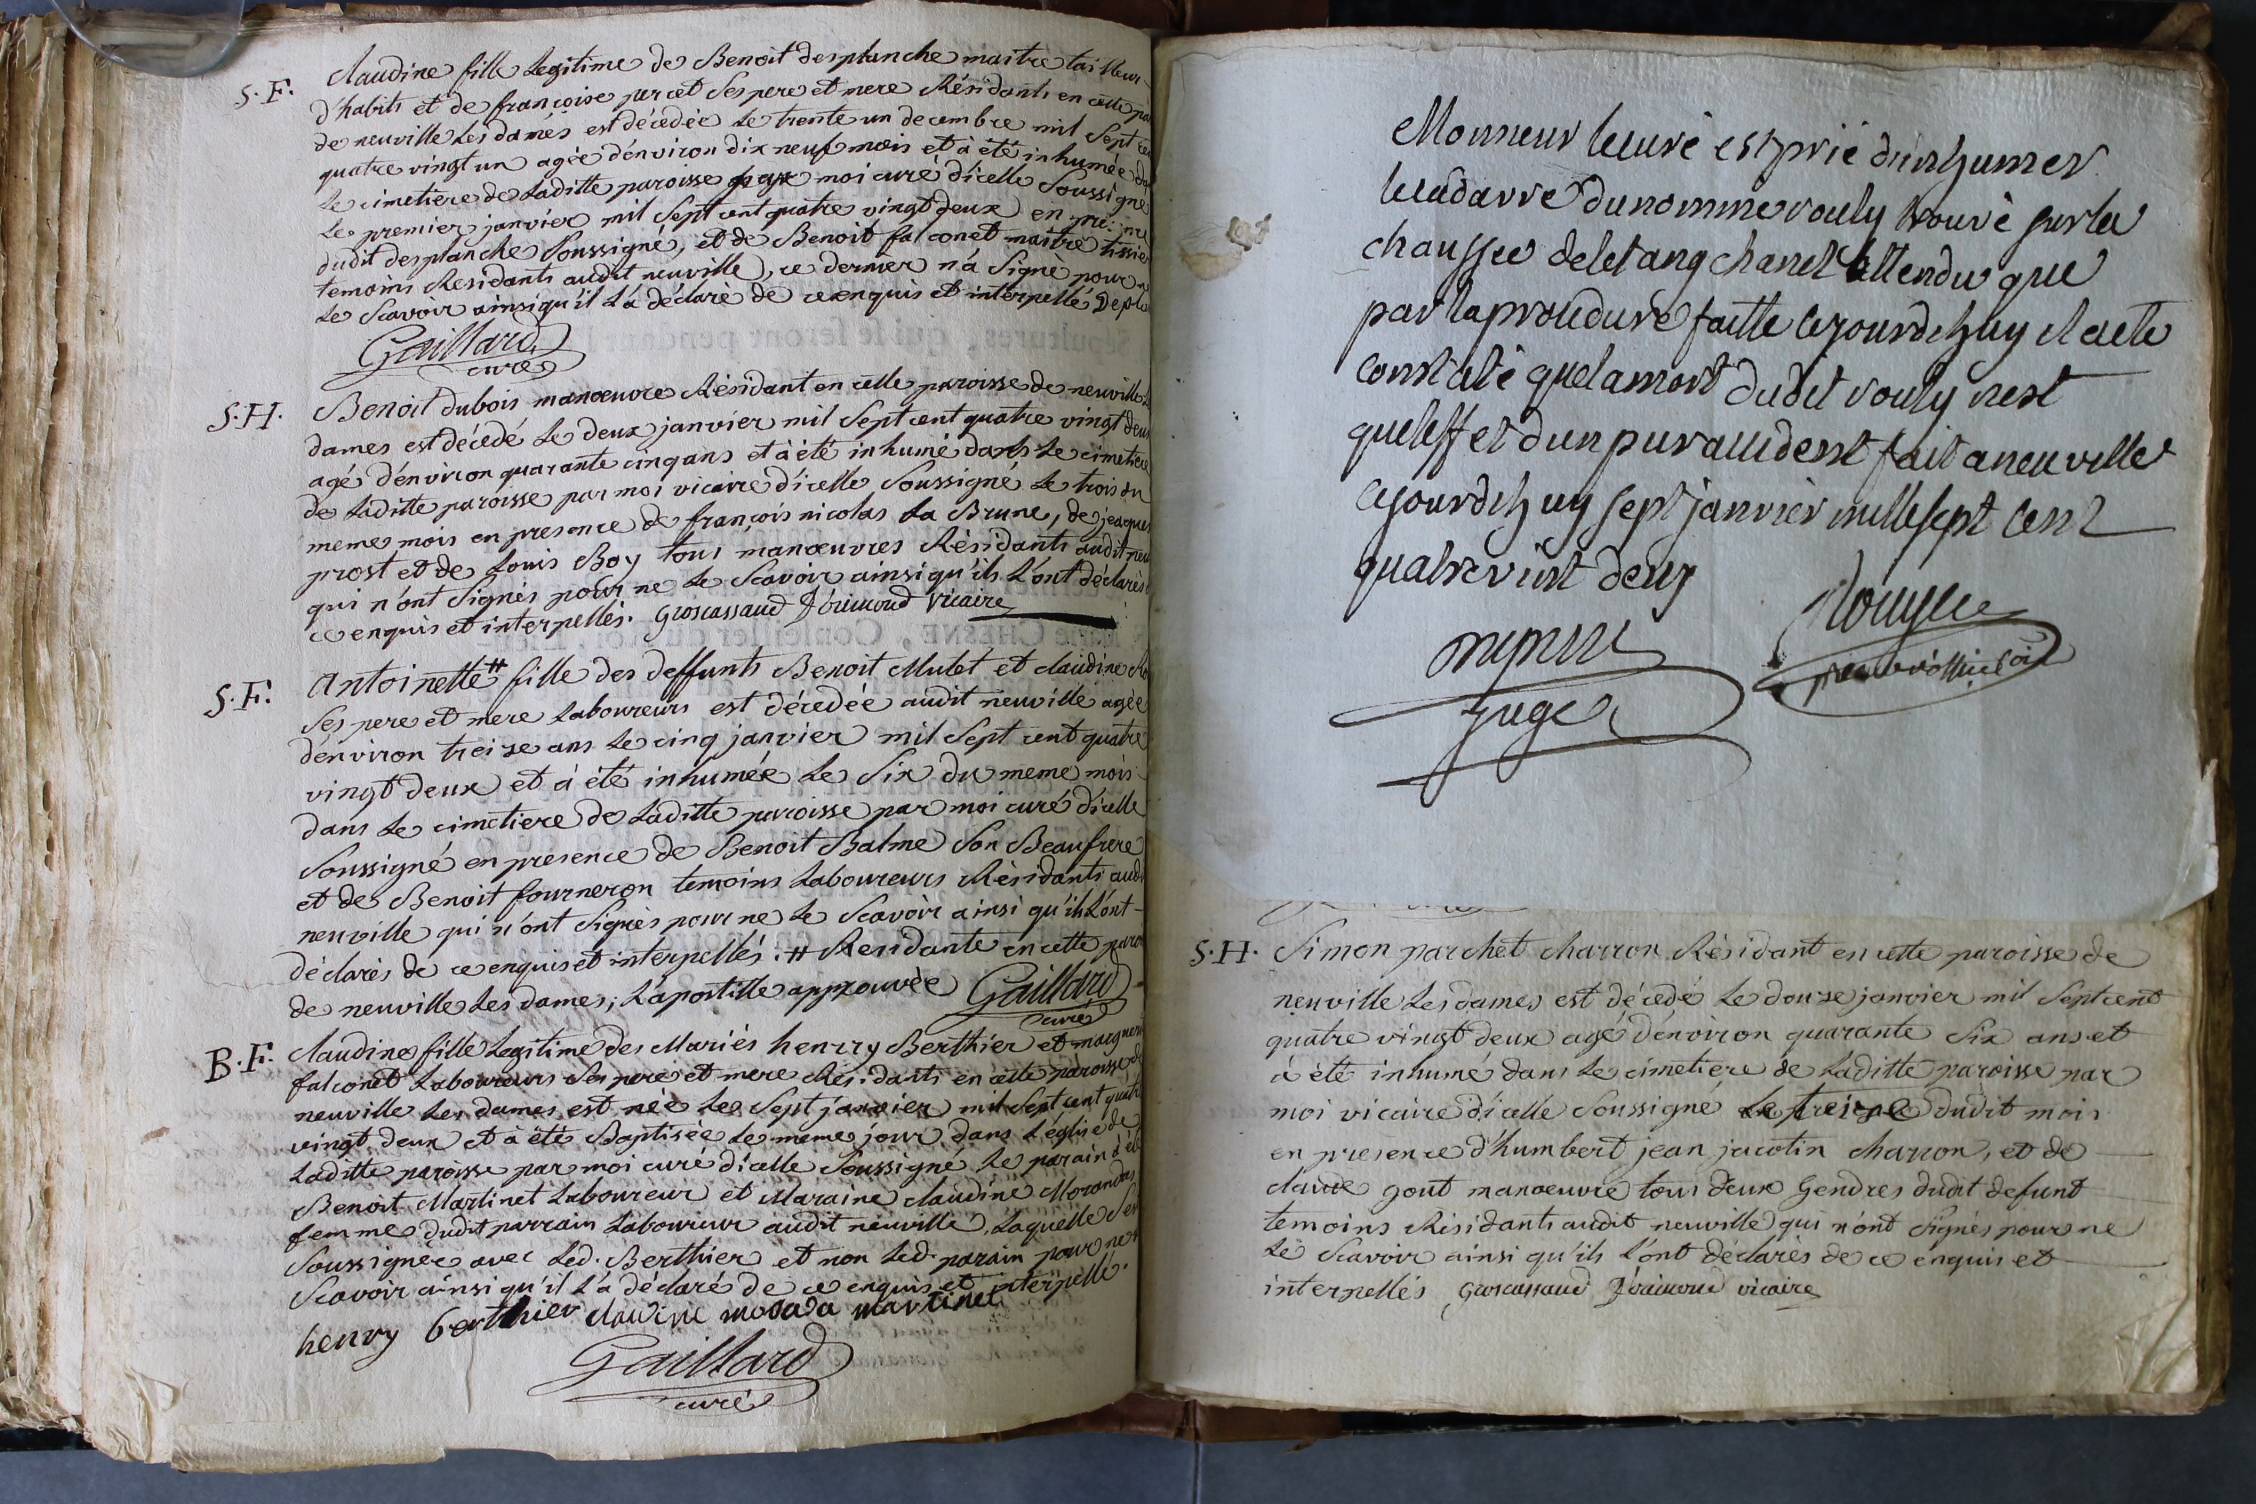 S. F. Claudine fille Legitime de Benoit desplanche maitre tailleur
d'habits et de françoise parcet Ses pere et mere Résidants en cette
de neuville Les dames est décédée Le trente un decembre mil Sept
quatre vingt un agée d'environ dix neuf mois et à été inhumée
Le cimetiere de Laditte paroisse par moi curé d'icelle Soussigné
Le premier janvier mil Sept cent quatre vingt deux en
dudit desplanche Soussigné, et de Benoit falconet maitre tissier
temoins Residants audit neuville, ce dernier n'à Signé pour
Le Scavoir ainsi qu'il L'à déclaré de ce enquis et interpellé
Gaillard
curé
S. H. Benoit dubois manoeuvre Résidant en cette paroisse de neuville
dames est décedé Le deux janvier mil Sept cent quatre vingt deux
agé d'environ quarante cinq ans et à été inhumé dans Le cimetiere
de Laditte paroisse par moi vicaire d'icelle Soussigné Le trois du
meme mois en presence de françois nicolas La Brune, de jeacques
prost et de Louis Boy tous manoeuvres Résidants audit
qui n'ont Signés pour ne Le Scavoir ainsi qu'ils L'ont déclarés
ce enquis et interpellés. Groscassaud Dorimond vicaire
S. F. Antoinette # fille des deffunts Benoit Mulet et Claudine
Ses pere et mere Laboureurs est décedée audit neuville agée
d'environ treize ans Le cinq janvier mil Sept cent quatre
vingt deux et à été inhumée Le Six du meme mois
dans Le cimetiere de Laditte paroisse par moi curé d'icelle
Soussigné en presence de Benoit Balme Son Beaufrere
et de Benoit fourneron temoins Laboureurs Résidants
neuville qui n'ont Signés pour ne Le Scavoir ainsi qu'ils L'ont
déclarés de ce enquis et interpellés. # Residante en cette
de neuville Les dames; L'apostille approuvée Gaillard
curé
B. F. Claudine fille Legitime des Mariés henrry Berthier et
falconet Laboureurs Ses pere et mere Résidants en cette paroisse
neuville Les dames est née Le Sept janvier mil Sept cent
vingt deux et à été Baptisée Le meme jour dans L'église de
Laditte paroisse par moi curé d'icelle Soussigné Le parain à été
Benoit Martinet Laboureur et Maraine Claudine
femme dudit parrain Laboureur audit neuville, Laquelle
Soussignée avec Led. Berthier et non Led. parain pour ne
Scavoir ainsi qu'il L'à déclaré de ce enquis et interpellé.
henry berthier claudine martinet
Gaillard
curé
Monsieur lecuré est prié dinhumer
lecadavre dunomme rouly trouvé surla
chaussee deletang chanel attendu que
par laprocedure faitte cejourdhuy il aete
constaté quelamort dudit rouly nest
queleffet dun pur accident fait aneuville
cejourdhuy sept janvier millesept cent
quatrevint deux
juge
S. H. Simon parchet charron Résidant en cette paroisse de
neuville Les dames est décedé Le douze janvier mil Sept cent
quatre vingt deux agé d'environ quarante Six ans et
à été inhumé dans Le cimetiere de Laditte paroisse par
moi vicaire d'icelle Soussigné Le treize dudit mois
en presence d'humbert jean jacotin charron, et de
claude gout manoeuvre tous deux Gendres dudit defunt
temoins Résidants audit neuville qui n'ont Signés pour ne
Le Scavoir ainsi qu'ils L'ont déclarés de ce enquis et
interpellés Groscassaud Dorimond vicaire